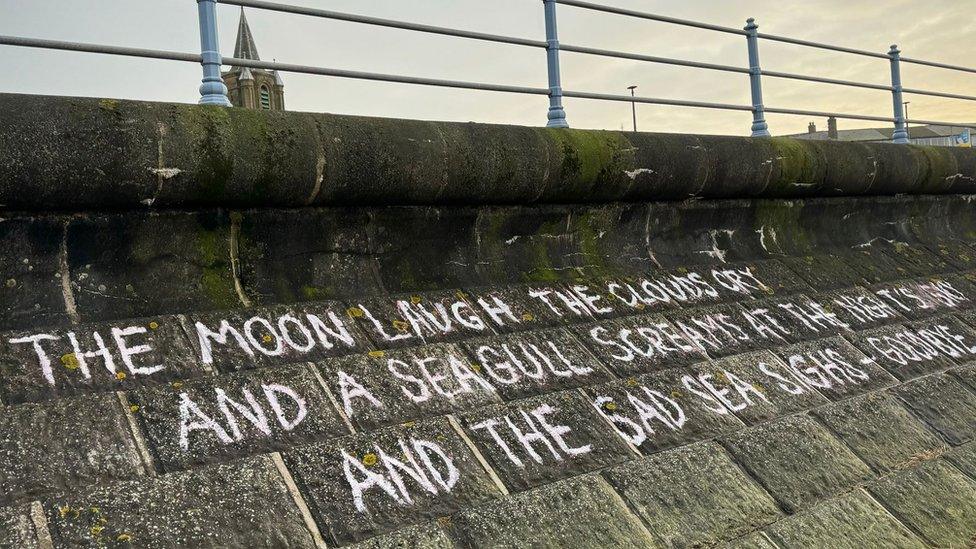 THE MOON LAUGH THE CLOUDS CRY
AND A SEAGULL SCREAMS AT THE NIGHTS SKY
AND THE SAD SEA SIGHS GOODBYE